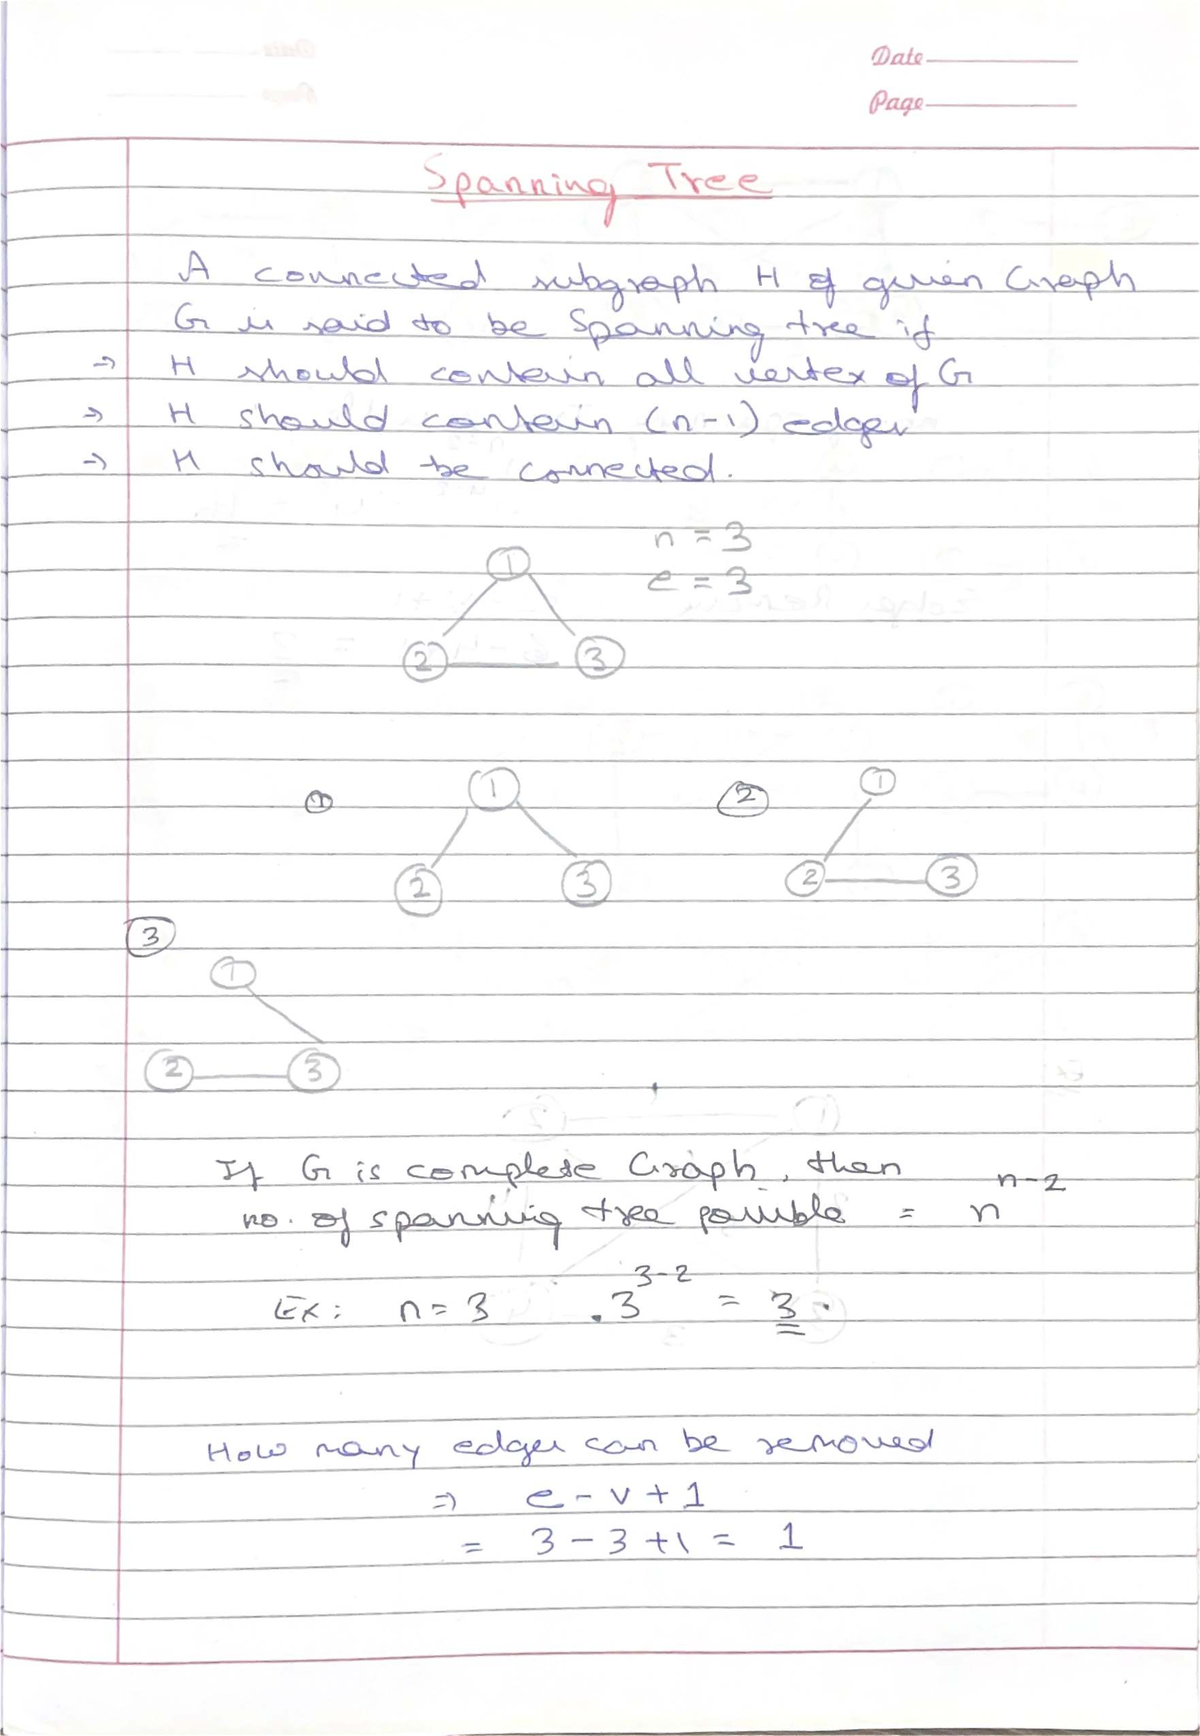 Date
Page
Spanning Tree
A connected subgraph H of given Graph
G is said to be Spanning tree if
⇒ H should contain all vertex of G
⇒ H should contain (n-1) edges
⇒ H should be connected.
n = 3
e = 3
1
2 3
① 1
2 3
② 1
2 3
③
1
2 3
If G is complete Graph, then
no. of spanning tree possible = n^{n-2}
Ex: n = 3 . 3^{3-2} = 3.
How many edges can be removed
⇒ e - v + 1
= 3 - 3 + 1 = 1